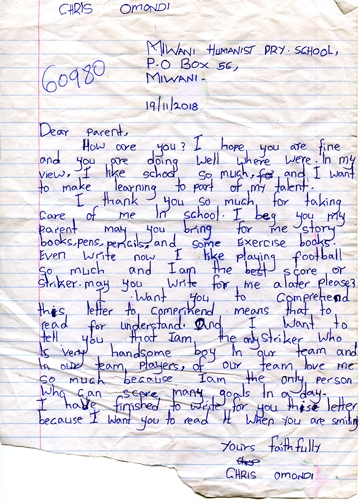 CHRIS OMONDI
MIWANI HUMANIST PRY. SCHOOL,
P.O BOX 56,
MIWANI-
60980
19/11/2018
Dear parent,
How are you? I hope you are fine
and you are doing well where were. In my
view, I like school so much, and I want
to make learning to part of my talent.
I thank you so much for taking
care of me In school. I beg you my
parent may you bring for me story
books, pens, pencils, and some Exercise books.
Even write now I like playing football
so much and I am the best score or
striker. may you write for me a later please?
I want you to comprehend
this, letter to comerikend means that to
read for understand. And I want to
tell you that Iam, the my striker who
Is very handsome boy In our team and
In our team, players, of our team love me
so much because Iam the only person
Who can score many goals In a day.
I have finished to write for you this letter
because I want you to read It when you are smilin
Yours faithfully
CHRIS OMONDI